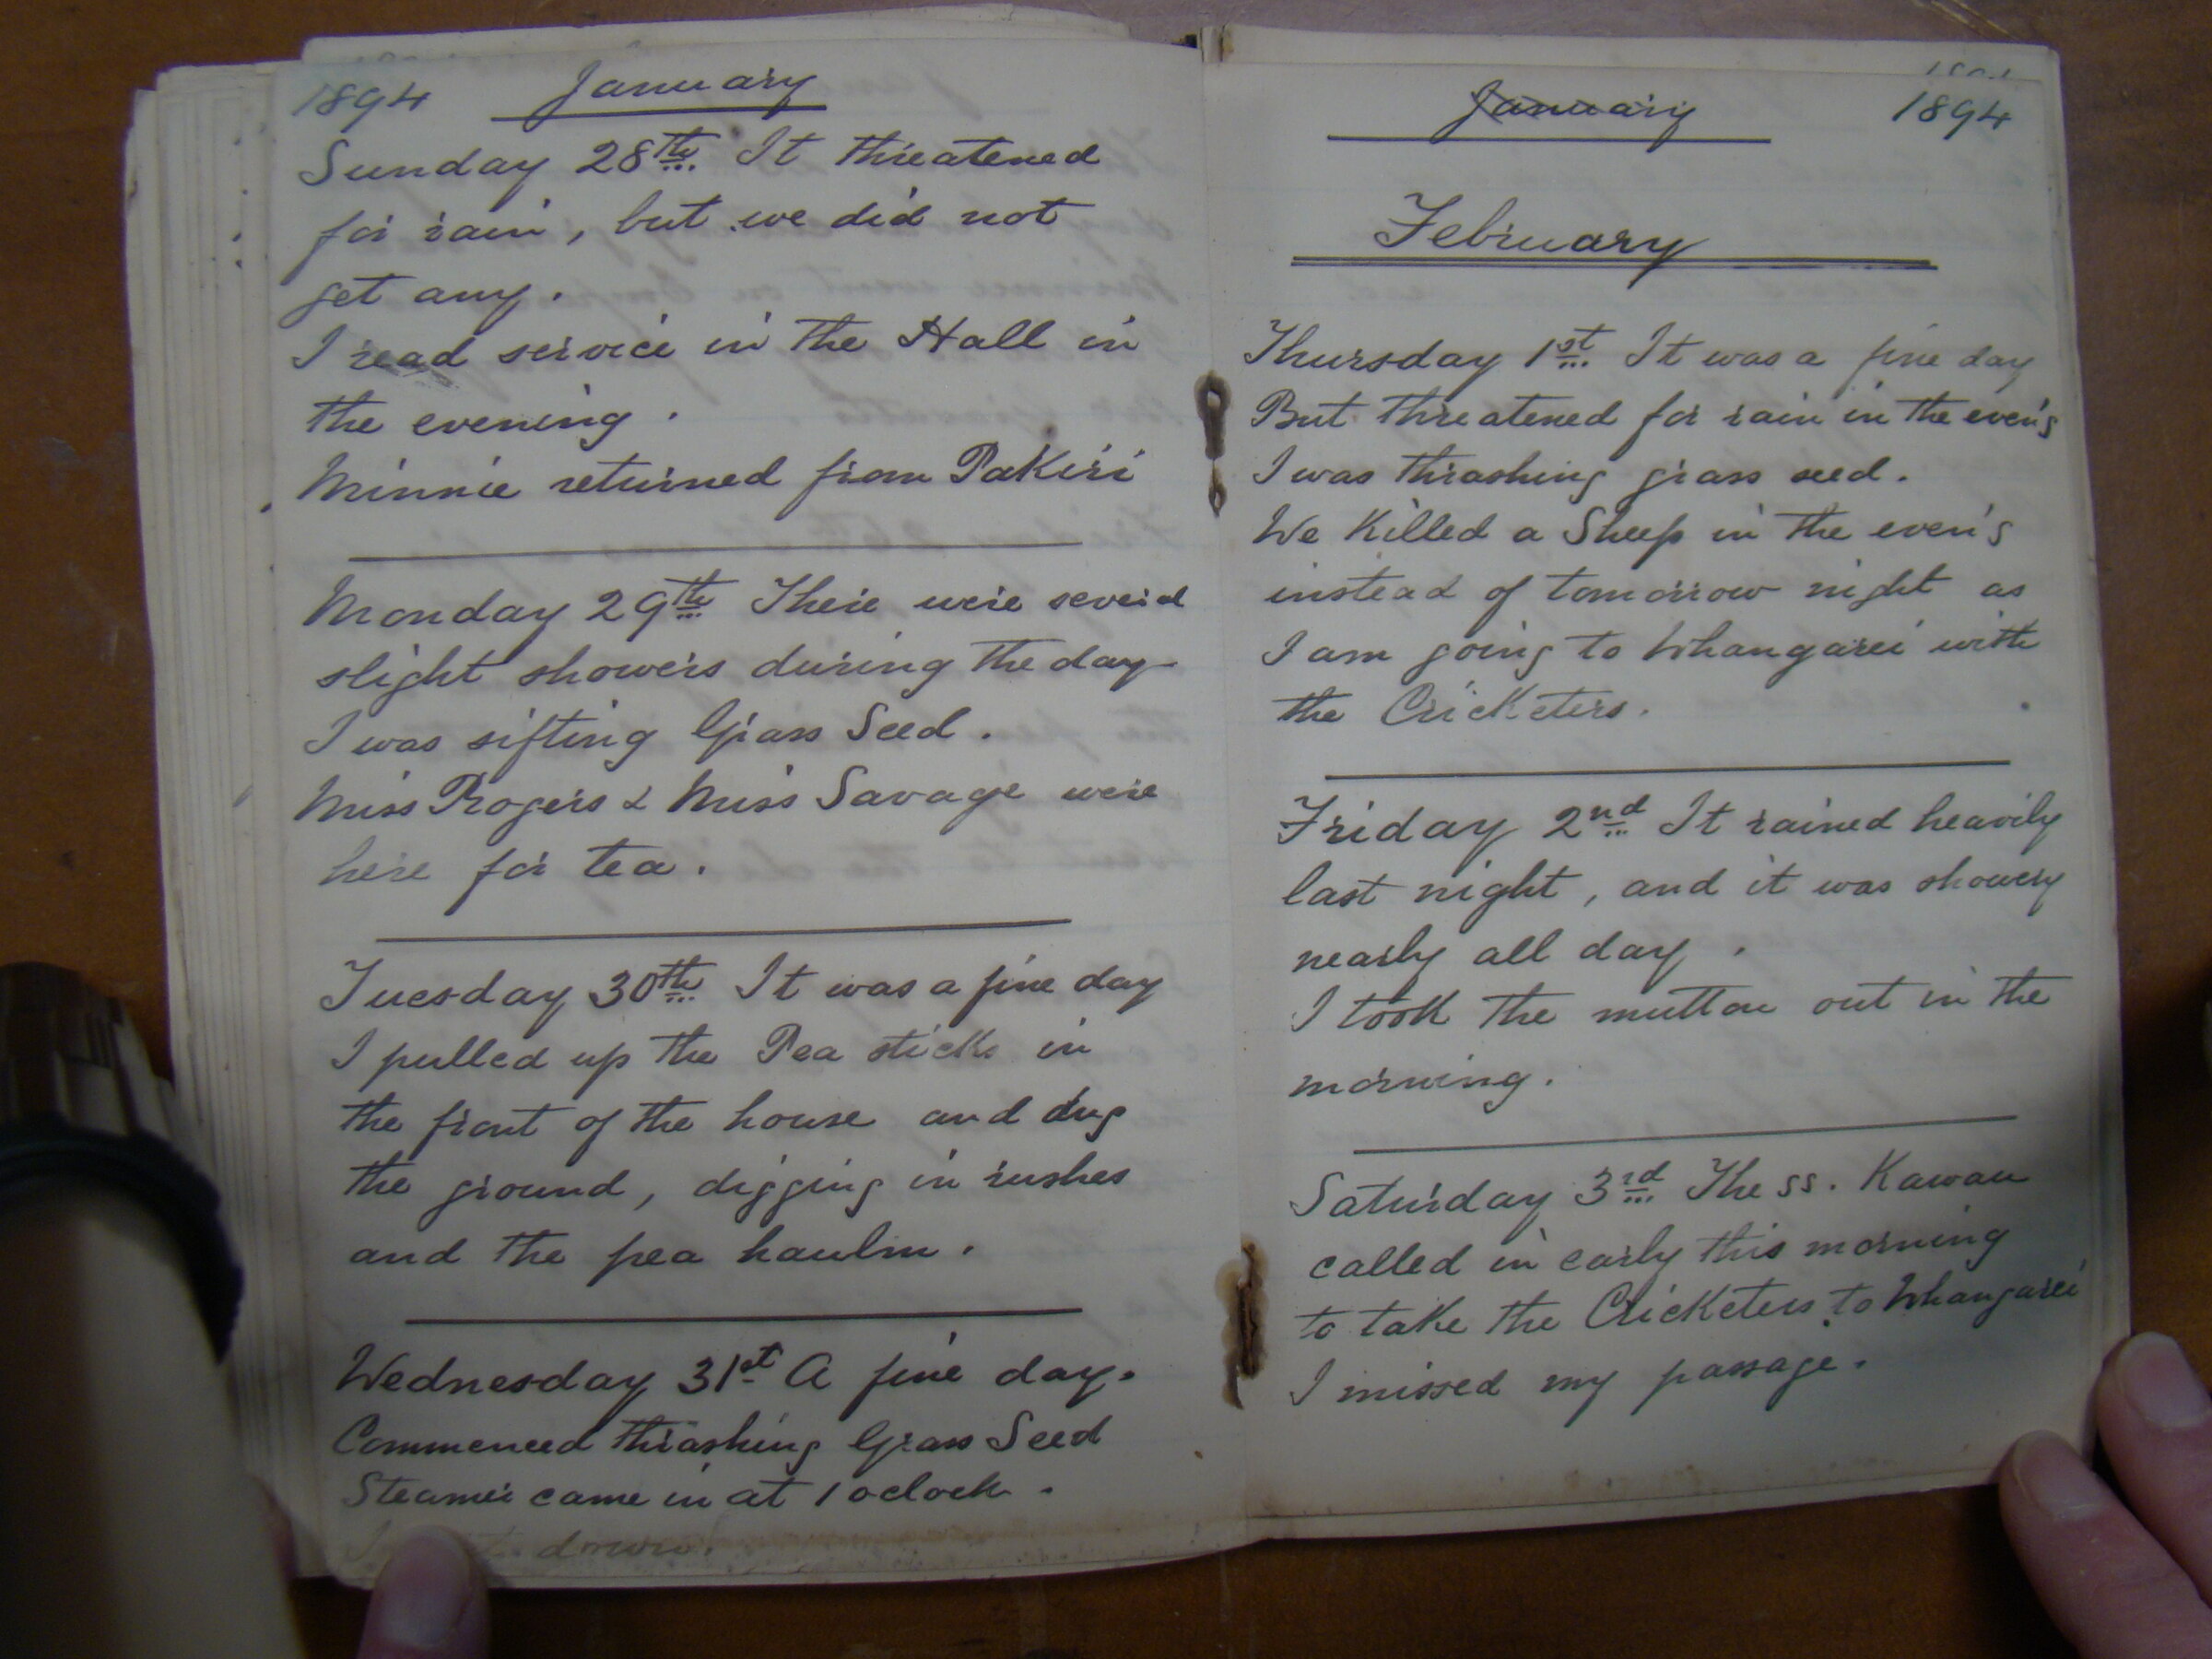 1894 January
Sunday 28th It threatened
for rain, but we did not
get any.
I read service in the Hall in
the evening.
Minnie returned from Pakiri
Monday 29th There were several
slight showers during the day
I was sifting Grass Seed.
Miss Rogers & Miss Savage were
here for tea.
Tuesday 30th It was a fine day
I pulled up the Pea sticks in
the front of the house and dug
the ground, digging in rushes
and the pea haulm.
Wednesday 31st A fine day.
Commenced thrashing Grass Seed
Steamer came in at 1 oclock.
I down.
January 1894
February
Thursday 1st It was a fine day
But threatened for rain in the even'g
I was thrashing grass seed.
We Killed a Sheep in the even'g
instead of tomorrow night as
I am going to Whangarei with
the Cricketers.
Friday 2nd It rained heavily
last night, and it was showery
nearly all day.
I took the mutton out in the
morning.
Saturday 3rd The ss. Kawau
called in early this morning
to take the Cricketers to Whangarei
I missed my passage.